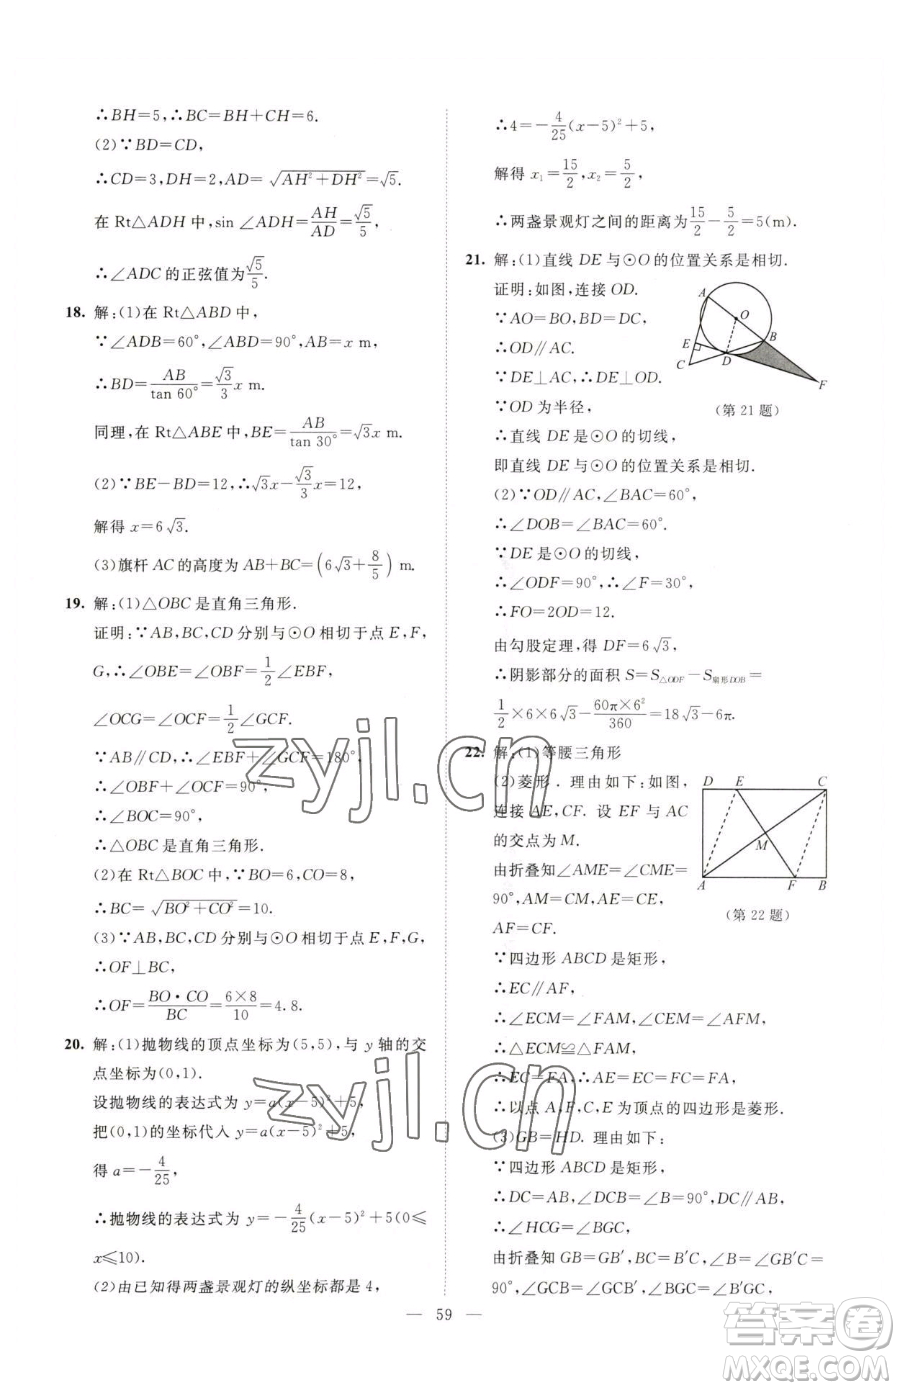 ∴BH=5,∴BC=BH+CH=6.
(2)∵BD=CD,
∴CD=3,DH=2,AD=√(AH²+DH²)=√5.
在 Rt△ADH 中,sin ∠ADH=AH/AD=√5/5.
∴∠ADC 的正弦值为√5/5.
18. 解:(1)在 Rt△ABD 中,
∵∠ADB=60°,∠ABD=90°,AB=x m,
∴BD=AB/tan 60°=√3/3 x m.
同理,在 Rt△ABE 中,BE=AB/tan 30°=√3x m.
(2)∵BE-BD=12,∴√3x-√3/3 x=12,
解得 x=6√3.
(3)旗杆 AC 的高度为 AB+BC=(6√3+8/5) m.
19. 解:(1)△OBC 是直角三角形.
证明:∵AB,BC,CD 分别与⊙O 相切于点 E,F,
G,∴∠OBE=∠OBF=1/2∠EBF,
∠OCG=∠OCF=1/2∠GCF.
∵AB∥CD,∴∠EBF+∠GCF=180°,
∴∠OBF+∠OCF=90°,
∴∠BOC=90°,
∴△OBC 是直角三角形.
(2)在 Rt△BOC 中,∵BO=6,CO=8,
∴BC=√(BO²+CO²)=10.
(3)∵AB,BC,CD 分别与⊙O 相切于点 E,F,G,
∴OF⊥BC,
∴OF=BO·CO/BC=6×8/10=4.8.
20. 解:(1)抛物线的顶点坐标为(5,5),与 y 轴的交
点坐标为(0,1).
设抛物线的表达式为 y=a(x-5)²+5,
把(0,1)的坐标代入 y=a(x-5)²+5,
得 a=-4/25,
∴抛物线的表达式为 y=-4/25(x-5)²+5(0≤
x≤10).
(2)由已知得两盏景观灯的纵坐标都是 4,
∴4=-4/25(x-5)²+5,
解得 x₁=15/2,x₂=5/2,
∴两盏景观灯之间的距离为15/2-5/2=5(m).
21. 解:(1)直线 DE 与⊙O 的位置关系是相切.
证明:如图,连接 OD.
∵AO=BO,BD=DC,
∴OD∥AC.
∵DE⊥AC,∴DE⊥OD.
∵OD 为半径,
∴直线 DE 是⊙O 的切线,
即直线 DE 与⊙O 的位置关系是相切.
A
O
E
B
C
D
F
(第 21 题)
(2)∵OD∥AC,∠BAC=60°,
∴∠DOB=∠BAC=60°.
∵DE 是⊙O 的切线,
∴∠ODF=90°,∴∠F=30°,
∴FO=2OD=12.
由勾股定理,得 DF=6√3.
∴阴影部分的面积 S=S△ODF-S扇形DOB=
1/2×6×6√3-60π×6²/360=18√3-6π.
22. 解:(1)等腰三角形
(2)菱形.理由如下:如图,
连接 AE,CF. 设 EF 与 AC
的交点为 M.
由折叠知∠AME=∠CME=
90°,AM=CM,AE=CE,
AF=CF.
D E C
M
A F B
(第 22 题)
∵四边形 ABCD 是矩形,
∴EC∥FA,
∴∠ECM=∠FAM,∠CEM=∠AFM,
∴△ECM≌△FAM,
∴EC=FA,∴AE=FC=EC=FA,
∴以点 A,F,C,E 为顶点的四边形是菱形.
(3)GB=HD. 理由如下:
∵四边形 ABCD 是矩形,
∴DC=AB,∠B=∠D=90°,DC∥AB,
∴∠HCG=∠BGC,
由折叠知 GB=GB′,BC=B′C,∠B=∠B′=
90°,∠GCB=∠GCB′,∠BGC=∠B′GC,
59
zyjl.cn
zyjl.cn
答案圈
MXQE.COM